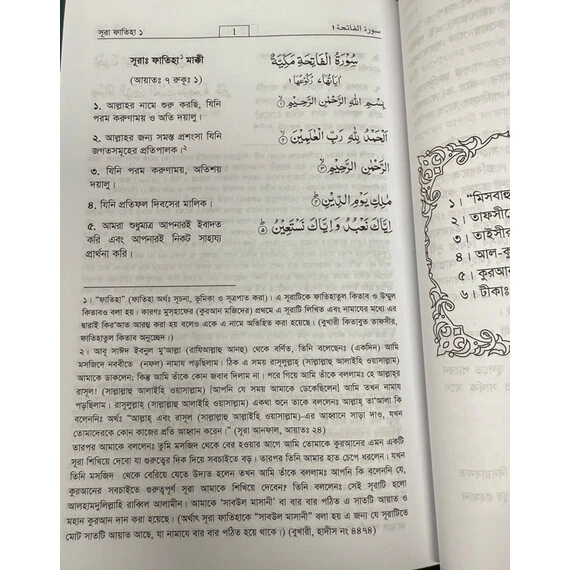 সূরা ফাতিহা ১
1
سورة الفاتحة ١
সূরাঃ ফাতিহা¹ মাক্কী
(আয়াতঃ ৭ রুকূঃ ১)
১. আল্লাহর নামে শুরু করছি, যিনি
পরম করুণাময় ও অতি দয়ালু।
২. আল্লাহর জন্য সমস্ত প্রশংসা যিনি
জগতসমূহের প্রতিপালক।²
৩. যিনি পরম করুণাময়, অতিশয়
দয়ালু।
৪. যিনি প্রতিফল দিবসের মালিক।
৫. আমরা শুধুমাত্র আপনারই ইবাদত
করি এবং আপনারই নিকট সাহায্য
প্রার্থনা করি।
سُوْرَةُ الْفَاتِحَةِ مَكِّيَّةٌ
اٰيَاتُهَا ٧ رُكُوْعُهَا ١
بِسْمِ اللّٰهِ الرَّحْمٰنِ الرَّحِيْمِ ①
اَلْحَمْدُ لِلّٰهِ رَبِّ الْعٰلَمِيْنَ ②
الرَّحْمٰنِ الرَّحِيْمِ ③
مٰلِكِ يَوْمِ الدِّيْنِ ④
اِيَّاكَ نَعْبُدُ وَاِيَّاكَ نَسْتَعِيْنُ ⑤
১। "ফাতিহা" (ফাতিহা অর্থঃ সূচনা, ভূমিকা ও সূত্রপাত করা)। এ সূরাটিকে ফাতিহাতুল কিতাব ও উম্মুল
কিতাবও বলা হয়। কারণঃ মুসহাফের (কুরআন মজিদের) প্রথমে এ সূরাটি লিখিত এবং নামাযের মধ্যে এর
দ্বারাই কির'আত আরম্ভ করা হয় বলেও একে এ নামে অভিহিত করা হয়েছে। (বুখারী কিতাবুত তাফসীর,
ফাতিহাতুল কিতাব অনুচ্ছেদ।)
২। আবূ সাঈদ ইবনুল মু'আল্লা (রাযিআল্লাহু আনহু) থেকে বর্ণিত, তিনি বলেছেনঃ (একদিন) আমি
মসজিদে নববীতে (নফল) নামায পড়ছিলাম। ঠিক এ সময় রাসূলুল্লাহ্ (সাল্লাল্লাহু আলাইহি ওয়াসাল্লাম)
আমাকে ডাকলেন; কিন্তু আমি তাঁকে কোন জবাব দিলাম না। পরে গিয়ে আমি তাঁকে বললামঃ হে আল্লাহ্‌র
রাসূল! (সাল্লাল্লাহু আলাইহি ওয়াসাল্লাম) [আপনি যে সময় আমাকে ডেকেছিলেন] আমি তখন নামায
পড়ছিলাম। রাসূলুল্লাহ্ (সাল্লাল্লাহু আলাইহি ওয়াসাল্লাম) একথা শুনে তাকে বললেনঃ আল্লাহ্ তা'আলা কি
বলেননিঃ অর্থঃ "আল্লাহ্ এবং রাসূল (সাল্লাল্লাহু আলাইহি ওয়াসাল্লাম)-এর আহ্বানে সাড়া দাও, যখন
তোমাদেরকে কোন কাজের প্রতি আহ্বান করেন।" (সূরা আনফাল, আয়াতঃ ২৪)
তারপর আমাকে বললেনঃ তুমি মসজিদ থেকে বের হওয়ার আগে আমি তোমাকে কুরআনের এমন একটি
সূরা শিখিয়ে দেবো যা গুরুত্বের দিক দিয়ে সবচাইতে বড়। তারপর তিনি আমার হাত চেপে ধরলেন। যখন
তিনি মসজিদ থেকে বেরিয়ে যেতে উদ্যত হলেন তখন আমি তাঁকে বললামঃ আপনি কি বলেননি যে,
কুরআনের সবচাইতে গুরুত্বপূর্ণ সূরা আমাকে শিখিয়ে দেবেন? তিনি বললেনঃ সেই সূরাটি হলো
আলহামদুলিল্লাহি রাব্বিল আলামীন। আমাকে 'সাবউল মাসানী' বা বার বার পঠিত এ সাতটি আয়াত ও
মহান কুরআন দান করা হয়েছে। (অর্থাৎ সূরা ফাতিহাকে "সাবউল মাসানী" বলা হয় এ জন্য যে সূরাটিতে
মোট সাতটি আয়াত আছে, যা নামাযে বার বার পঠিত হয়ে থাকে।) (বুখারী, হাদীস নং ৪৪৭৪)
১। "মিসবাহু
২। তাফসীরে
৩। তাইসীর
৪। আল-কু
৫। কুরআন
৬। টীকাঃ